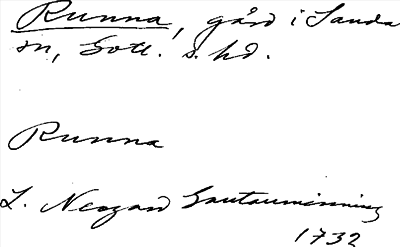 Runna, gård i Sanda
sn, Gotl. s. hd.
Runna
L. Neogard Gautauminning
1732